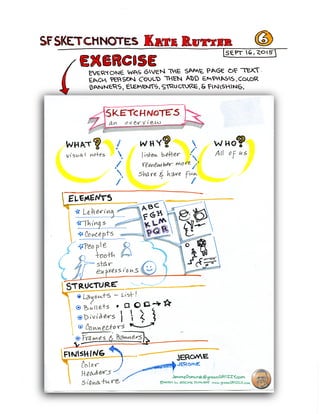 SF SKETCHNOTES KATE RUTTER 6
SEPT 16, 2015
EXERCISE
EVERYONE WAS GIVEN THE SAME PAGE OF TEXT
EACH PERSON COULD THEN ADD EMPHASIS, COLOR
BANNERS, ELEMENTS, STRUCTURE, & FINISHING.
SKETCHNOTES
an overview
WHAT?
visual notes
WHY?
listen better
remember more
share & have fun
WHO?
All of us
ELEMENTS
Lettering
Things
Concepts
People
tooth
star
expressions
ABC
FGH
KLM
PQR
STRUCTURE
Layouts - List!
Bullets
Dividers
Connectors
Frames & Banners
FINISHING
Color
Headers
Signature
JEROME
JEROME